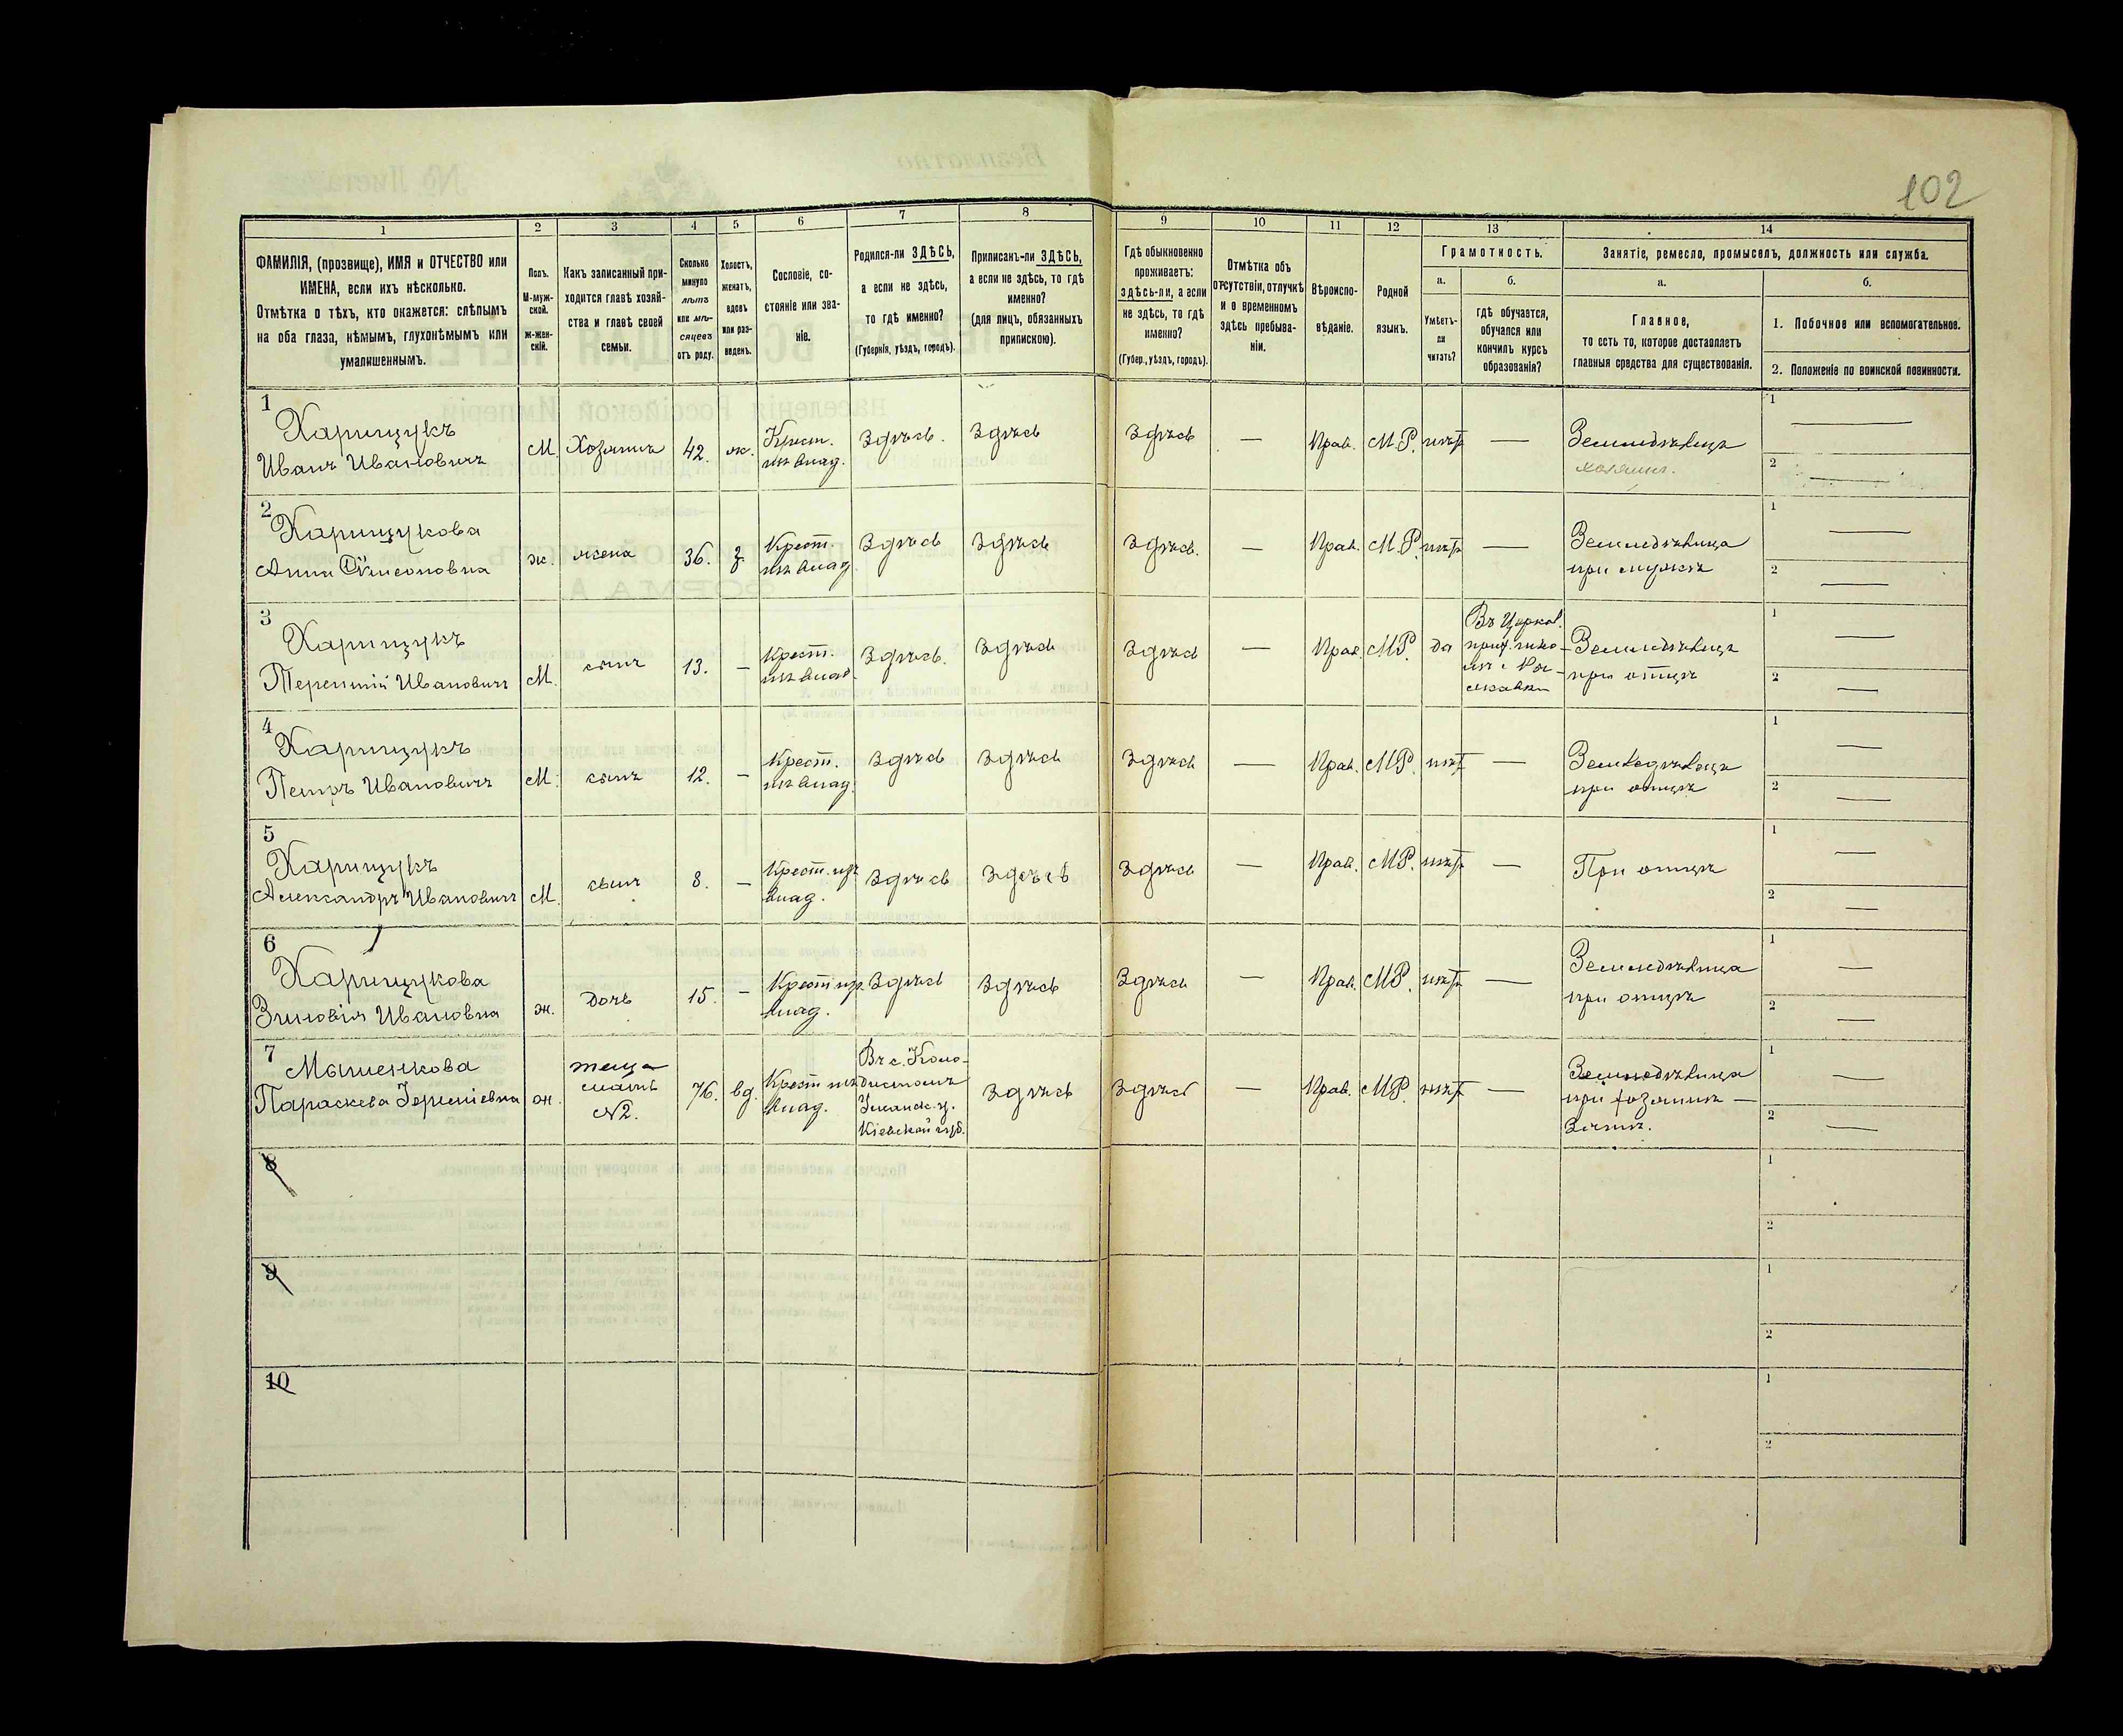 102
1
2
3
4
5
6
7
8
9
10
11
12
13
14
ФАМИЛІЯ, (прозвище), ИМЯ и ОТЧЕСТВО или
ИМЕНА, если ихъ нѣсколько.
Отмѣтка о тѣхъ, кто окажется: слѣпымъ
на оба глаза, нѣмымъ, глухонѣмымъ или
умалишеннымъ.
Полъ.
М-муж-
ской.
ж-жен-
скій.
Какъ записанный при-
ходится главѣ хозяй-
ства и главѣ своей
семьи.
Сколько
минуло
лѣтъ
или мѣ-
сяцевъ
отъ роду.
Холостъ,
женатъ,
вдовъ
или раз-
веденъ.
Сословіе, со-
стояніе или зва-
ніе.
Родился-ли ЗДѢСЬ,
а если не здѣсь,
то гдѣ именно?
(Губернія, уѣздъ, городъ).
Приписанъ-ли ЗДѢСЬ,
а если не здѣсь, то гдѣ
именно?
(для лицъ, обязанныхъ
припискою).
Гдѣ обыкновенно
проживаетъ:
здѣсь-ли, а если
не здѣсь, то гдѣ
именно?
(Губер., уѣздъ, городъ).
Отмѣтка объ
отсутствіи, отлучкѣ
и о временномъ
здѣсь пребыва-
ніи.
Вѣроиспо-
вѣданіе.
Родной
языкъ.
Грамотность.
а.
Умѣетъ-
ли
читать?
б.
гдѣ обучается,
обучался или
кончилъ курсъ
образованія?
Занятіе, ремесло, промыселъ, должность или служба.
а.
Главное,
то есть то, которое доставляетъ
главныя средства для существованія.
б.
1. Побочное или вспомогательное.
2. Положеніе по воинской повинности.
1
Харищукъ
Иванъ Ивановичъ
М.
Хозяинъ
42
ж.
Крест.
из влад.
Здѣсь.
Здѣсь
Здѣсь
—
Прав.
М.Р.
нѣтъ
—
Земледѣлецъ
хозяинъ.
1 —
2 —
2
Харищукова
Анна
ж.
жена
36.
з.
Крест.
из влад
Здѣсь
Здѣсь
Здѣсь.
—
Прав.
М.Р.
нѣтъ
—
Земледѣлица
при мужѣ
1 —
2 —
3
Харищукъ
Терентій Ивановичъ
М.
сынъ
13.
—
Крест.
из влад.
Здѣсь.
Здѣсь
Здѣсь
—
Прав.
МР.
да
Въ Церков.
Земледѣлецъ
при отцѣ
1 —
2 —
4
Харищукъ
Петръ Ивановичъ
М.
сынъ
12.
—
Крест.
из влад.
Здѣсь
Здѣсь
Здѣсь
—
Прав.
МР.
нѣтъ
—
Земледѣлецъ
при отцѣ
1 —
2 —
5
Харищукъ
Александръ Ивановичъ
М.
сынъ
8.
—
Крест. из
влад.
Здѣсь
Здѣсь
Здѣсь
—
Прав.
МР.
нѣтъ
—
При отцѣ
1 —
2 —
6
Харищукова
Зиновія Ивановна
ж.
дочь
15.
—
Крест из.
влад.
Здѣсь
Здѣсь
Здѣсь
—
Прав.
МР.
нѣтъ
—
Земледѣлица
при отцѣ
1 —
2 —
7
Параскева
ж.
теща
мать
№2.
76.
вд.
Крест из
влад.
Въ с.
Кіевской губ.
Здѣсь
Здѣсь
—
Прав.
МР.
нѣтъ
—
Земледѣлица
при хозяинѣ —
Зятѣ.
1 —
2 —
8
1
2
9
1
2
10
1
2